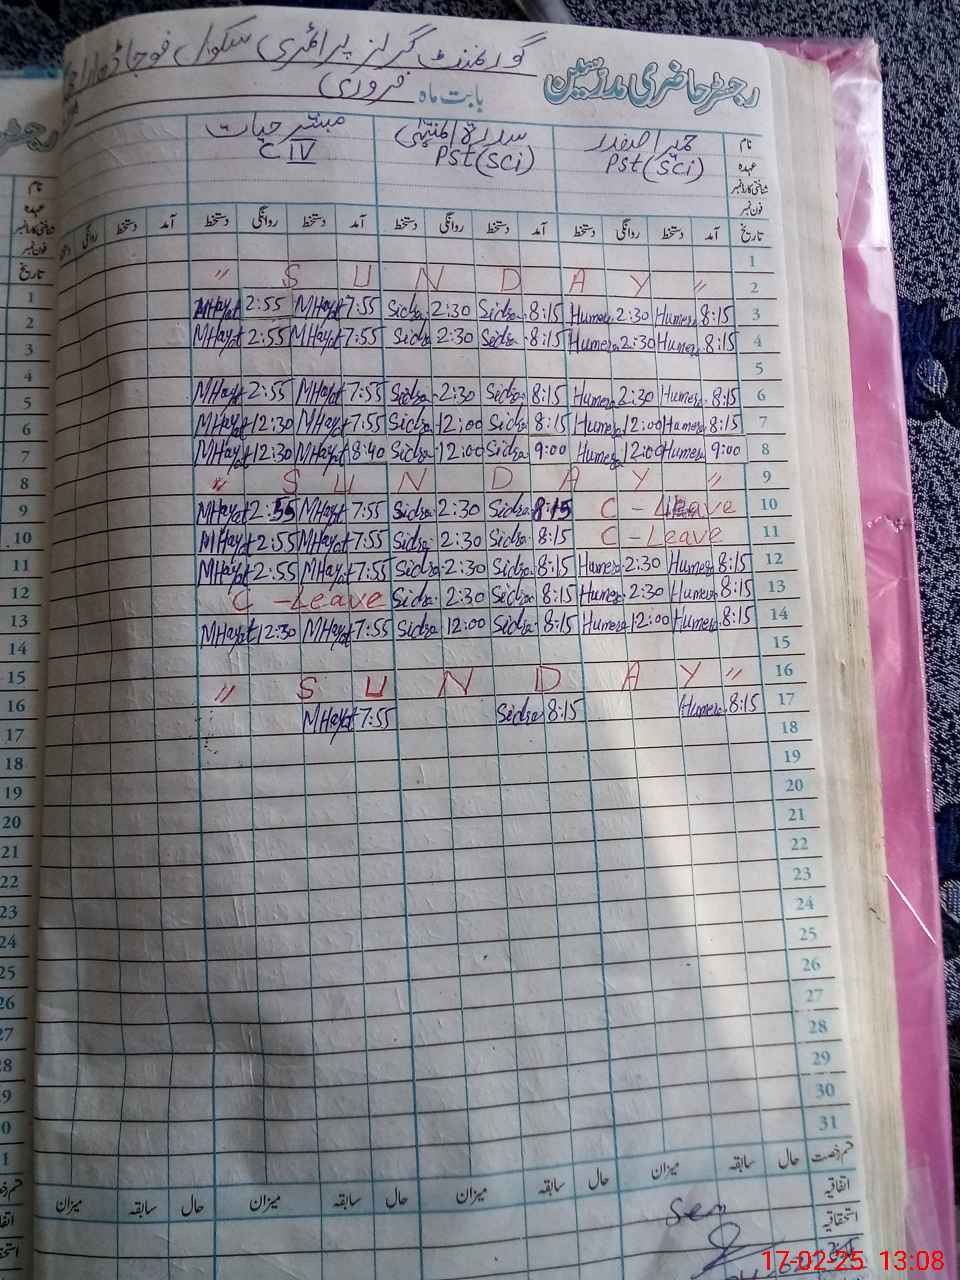 گورنمنٹ گرلز پرائمری سکول
رجسٹر حاضری مدرسین
بابت ماہ فروری
نام حمیرا صفدر سدرۃ المنتہیٰ مبشر حیات
عہدہ PST(SCI) PST(SCI) C IV
شناختی کارڈ نمبر
فون نمبر
تاریخ آمد دستخط روانگی دستخط آمد دستخط روانگی دستخط آمد دستخط روانگی دستخط آمد دستخط روانگی
1
" S U N D A Y " 2
MHayat 2:55 MHayat 7:55 Sidra 2:30 Sidra 8:15 Humera 2:30 Humera 8:15 3
MHayat 2:55 MHayat 7:55 Sidra 2:30 Sidra 8:15 Humera 2:30 Humera 8:15 4
5
MHayat 2:55 MHayat 7:55 Sidra 2:30 Sidra 8:15 Humera 2:30 Humera 8:15 6
MHayat 12:30 MHayat 7:55 Sidra 12:00 Sidra 8:15 Humera 12:00 Humera 8:15 7
MHayat 12:30 MHayat 8:40 Sidra 12:00 Sidra 9:00 Humera 12:00 Humera 9:00 8
" S U N D A Y " 9
MHayat 2:55 MHayat 7:55 Sidra 2:30 Sidra 8:15 C - Leave 10
MHayat 2:55 MHayat 7:55 Sidra 2:30 Sidra 8:15 C - Leave 11
MHayat 2:55 MHayat 7:55 Sidra 2:30 Sidra 8:15 Humera 2:30 Humera 8:15 12
C - Leave Sidra 2:30 Sidra 8:15 Humera 2:30 Humera 8:15 13
MHayat 12:30 MHayat 7:55 Sidra 12:00 Sidra 8:15 Humera 12:00 Humera 8:15 14
15
" S U N D A Y " 16
MHayat 7:55 Sidra 8:15 Humera 8:15 17
18
19
20
21
22
23
24
25
26
27
28
29
30
31
قسم رخصت حال سابقہ میزان حال سابقہ میزان حال سابقہ میزان حال سابقہ میزان
اتفاقیہ
استحقاقیہ
Seen
17-02-25 13:08